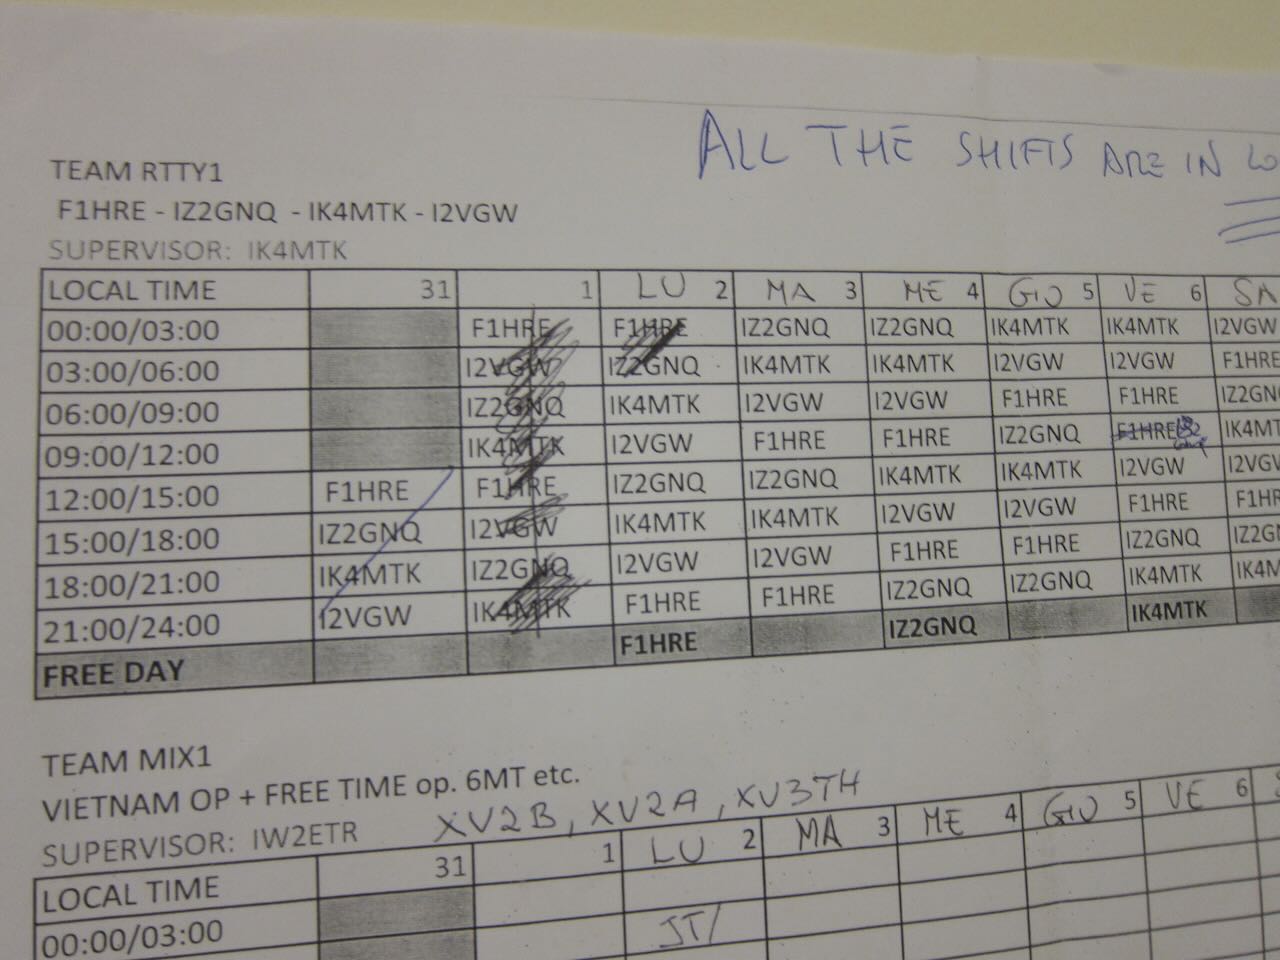 ALL THE SHIFTS ARE IN
TEAM RTTY1
F1HRE - IZ2GNQ - IK4MTK - I2VGW
SUPERVISOR: IK4MTK
LOCAL TIME 31 1 LU 2 MA 3 ME 4 GIO 5 VE 6 SA
00:00/03:00 F1HRE F1HRE IZ2GNQ IZ2GNQ IK4MTK IK4MTK I2VGW
03:00/06:00 I2VGW IZ2GNQ IK4MTK IK4MTK I2VGW I2VGW F1HRE
06:00/09:00 IZ2GNQ IK4MTK I2VGW I2VGW F1HRE F1HRE IZ2GN
09:00/12:00 IK4MTK I2VGW F1HRE F1HRE IZ2GNQ F1HRE IK4MT
12:00/15:00 F1HRE F1HRE IZ2GNQ IZ2GNQ IK4MTK IK4MTK I2VGW I2VG
15:00/18:00 IZ2GNQ I2VGW IK4MTK IK4MTK I2VGW I2VGW F1HRE F1HR
18:00/21:00 IK4MTK IZ2GNQ I2VGW I2VGW F1HRE F1HRE IZ2GNQ IZ2G
21:00/24:00 I2VGW IK4MTK F1HRE F1HRE IZ2GNQ IZ2GNQ IK4MTK IK4M
FREE DAY F1HRE IZ2GNQ IK4MTK
TEAM MIX1
VIETNAM OP + FREE TIME op. 6MT etc.
SUPERVISOR: IW2ETR XV2B, XV2A, XV3TH
LOCAL TIME 31 1 LU 2 MA 3 ME 4 GIO 5 VE 6
00:00/03:00 JT/